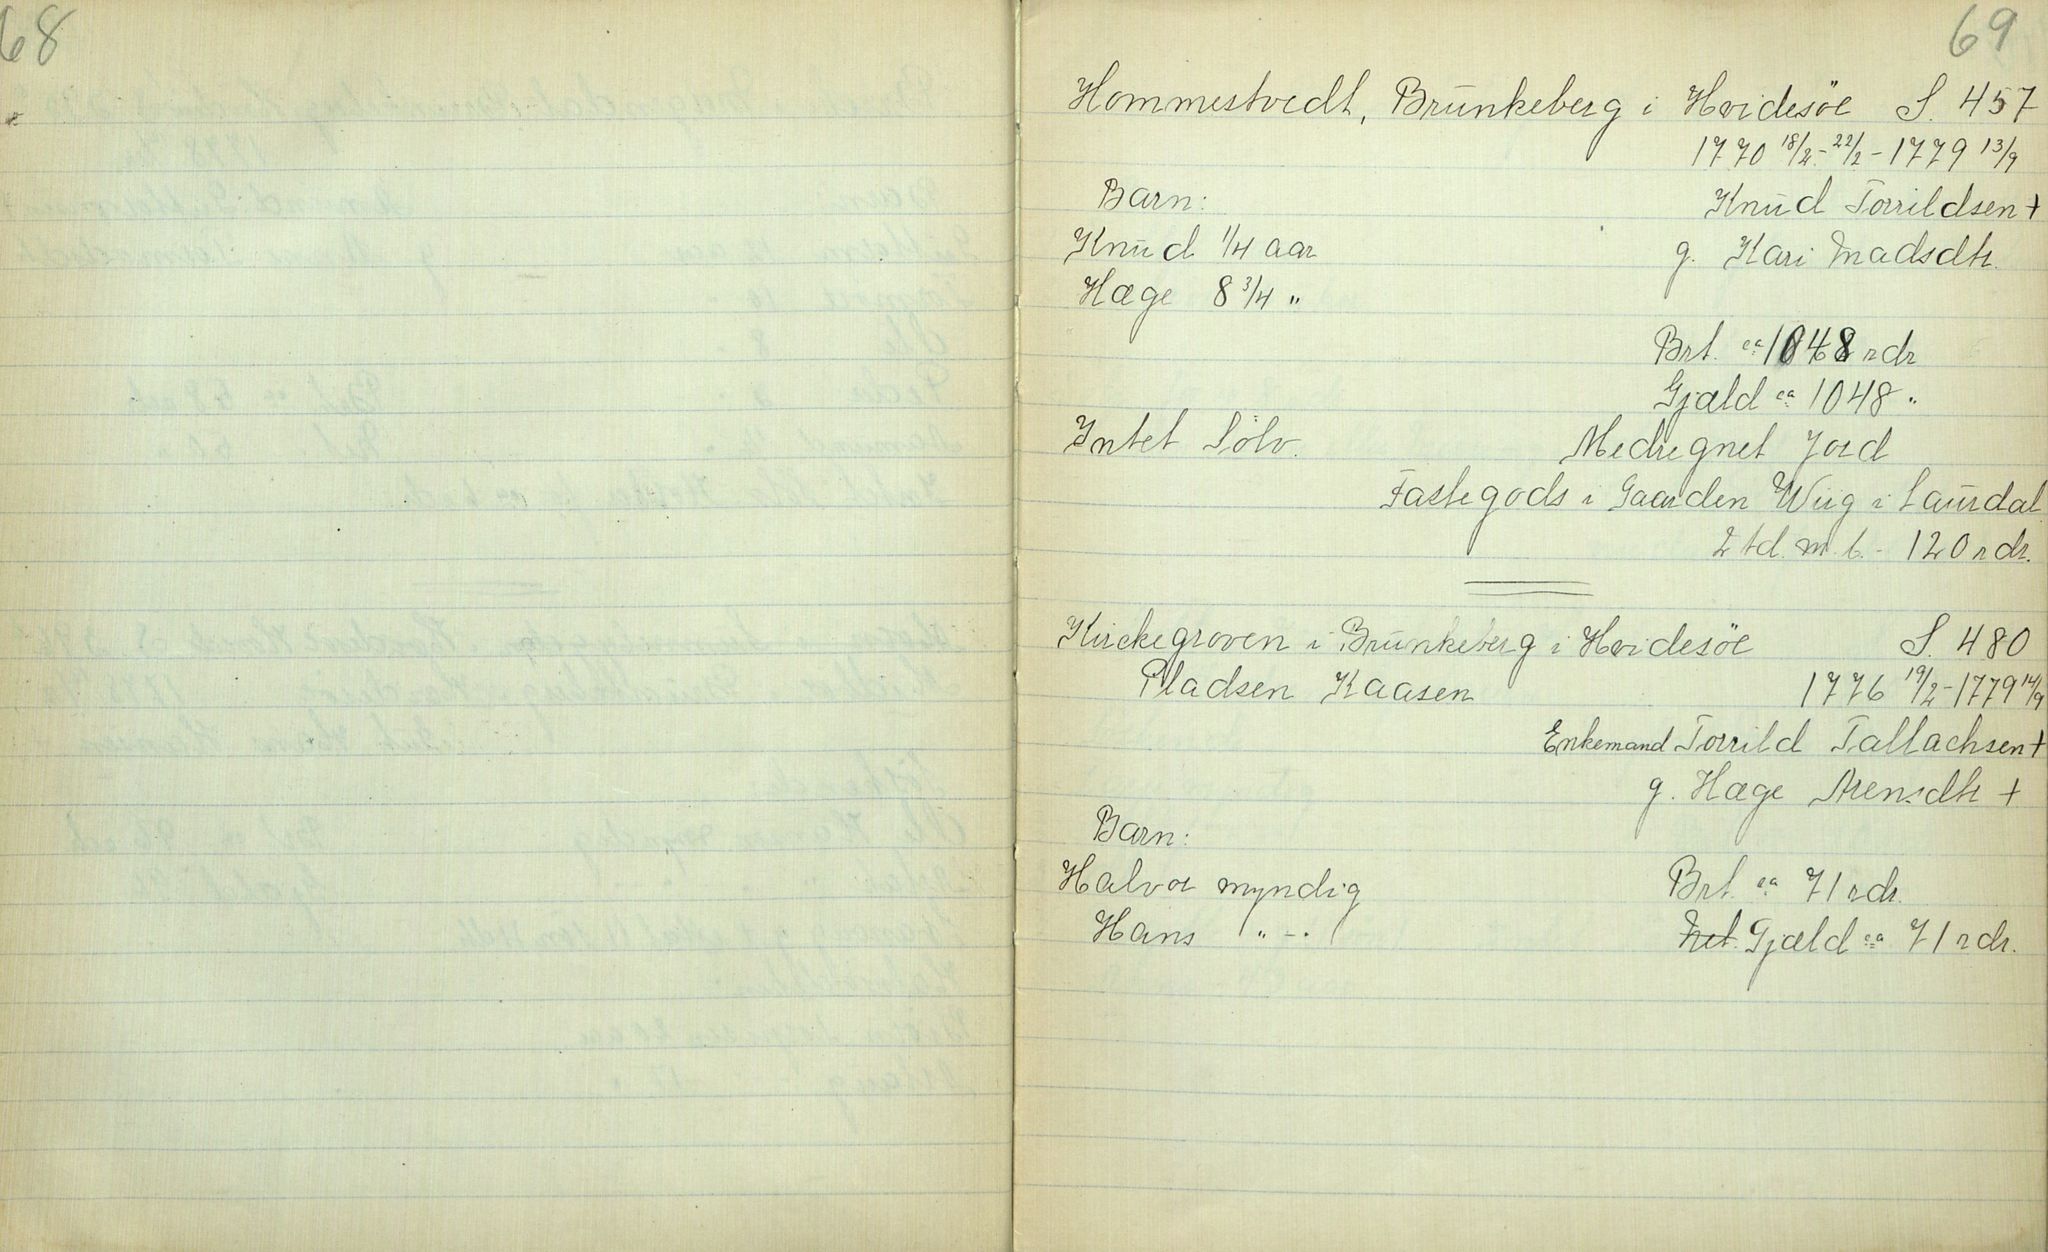 68
69
Hommestvedt, Brunkeberg i Hvidesöe S. 457
1770 18/2 - 22/2 - 1779 13/9
Barn:
Knud Torrildsen +
Knud 1/4 aar
g. Kari Madsdtr.
Hæge 8 3/4 "
Brt. ca 1048 rdr
Gjæld ca 1048 "
Intet Sölv.
Medregnet Jord
Fastegods i Gaarden Wiig i Laurdal
2 td. m. l. - 120 rdr.
Kirckegroven i Brunkeberg i Hvidesöe S. 480
Pladsen Kaasen 1776 19/2 - 1779 14/9
Enkemand Torrild Tallachsen +
g. Hæge Arensdtr +
Barn:
Halvor myndig
Brt. ca 71 rdr.
Hans " - "
Net. Gjæld ca 71 rdr.